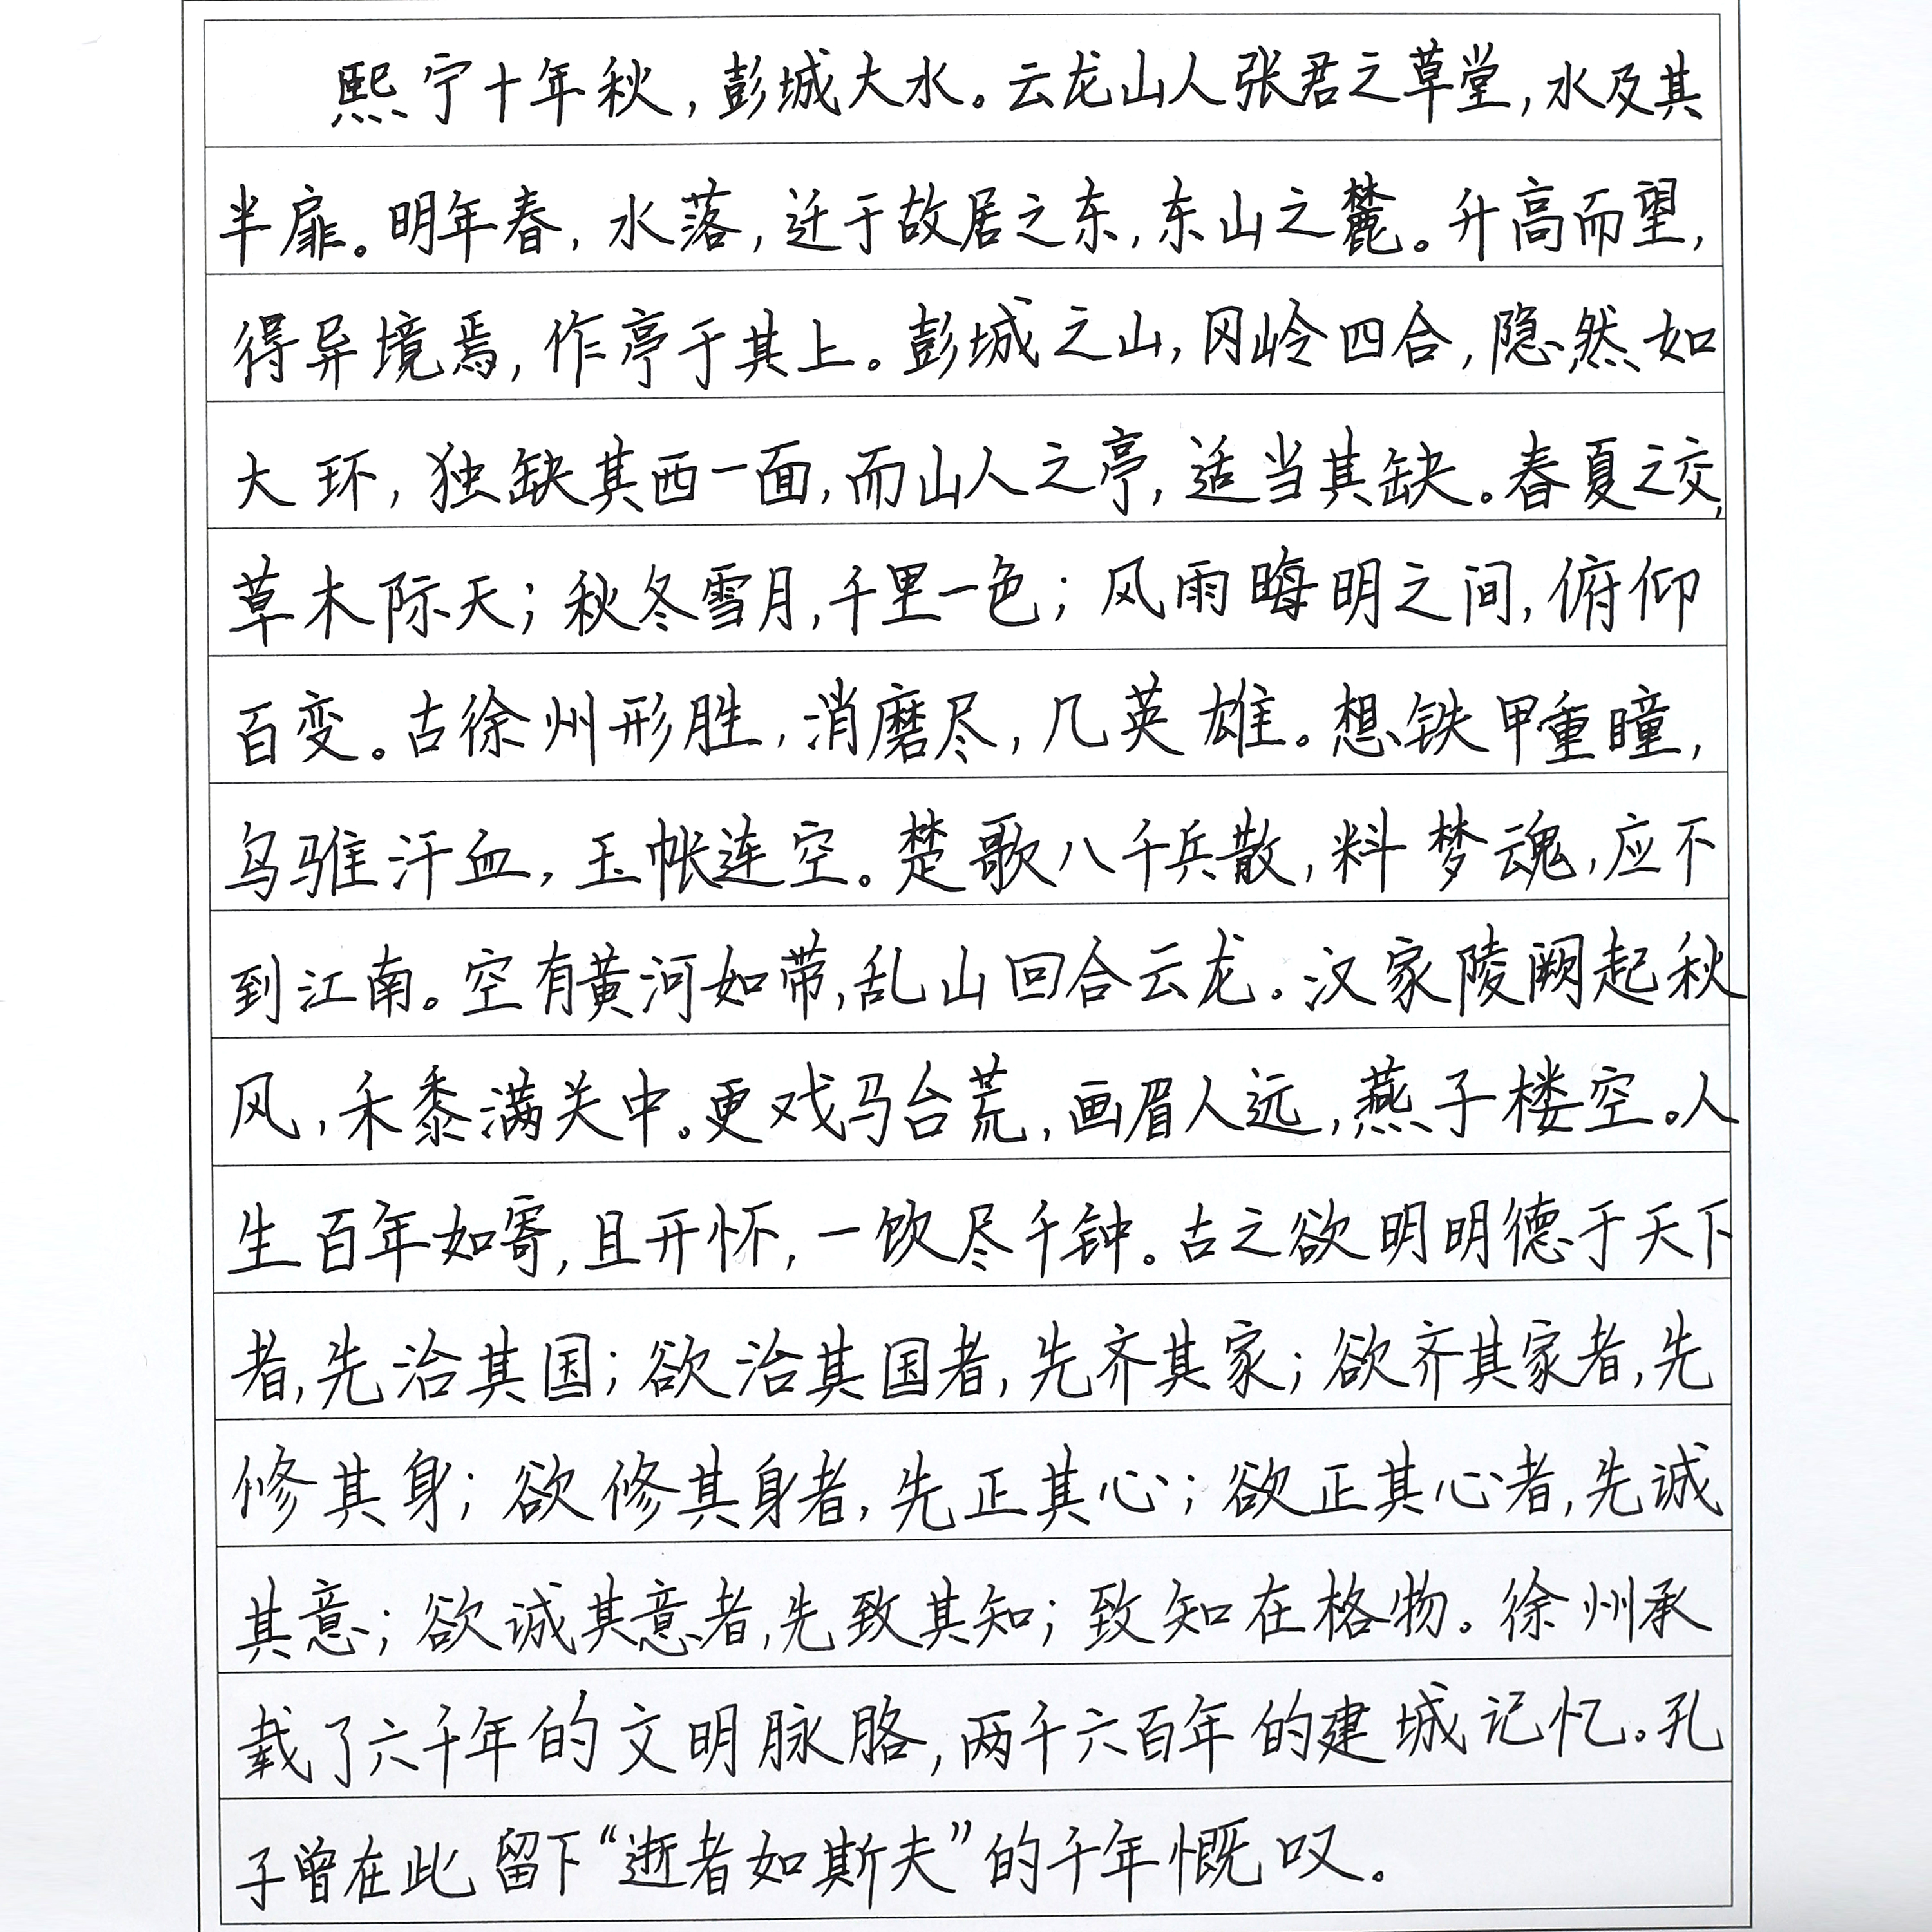 熙宁十年秋,彭城大水。云龙山人张君之草堂,水及其
半扉。明年春,水落,迁于故居之东,东山之麓。升高而望,
得异境焉,作亭于其上。彭城之山,冈岭四合,隐然如
大环,独缺其西一面,而山人之亭,适当其缺。春夏之交,
草木际天;秋冬雪月,千里一色;风雨晦明之间,俯仰
百变。古徐州形胜,消磨尽,几英雄。想铁甲重瞳,
乌骓汗血,玉帐连空。楚歌八千兵散,料梦魂,应不
到江南。空有黄河如带,乱山回合云龙。汉家陵阙起秋
风,禾黍满关中。更戏马台荒,画眉人远,燕子楼空。人
生百年如寄,且开怀,一饮尽千钟。古之欲明明德于天下
者,先治其国;欲治其国者,先齐其家;欲齐其家者,先
修其身;欲修其身者,先正其心;欲正其心者,先诚
其意;欲诚其意者,先致其知;致知在格物。徐州承
载了六千年的文明脉胳,两千六百年的建城记忆。孔
子曾在此留下“逝者如斯夫”的千年慨叹。